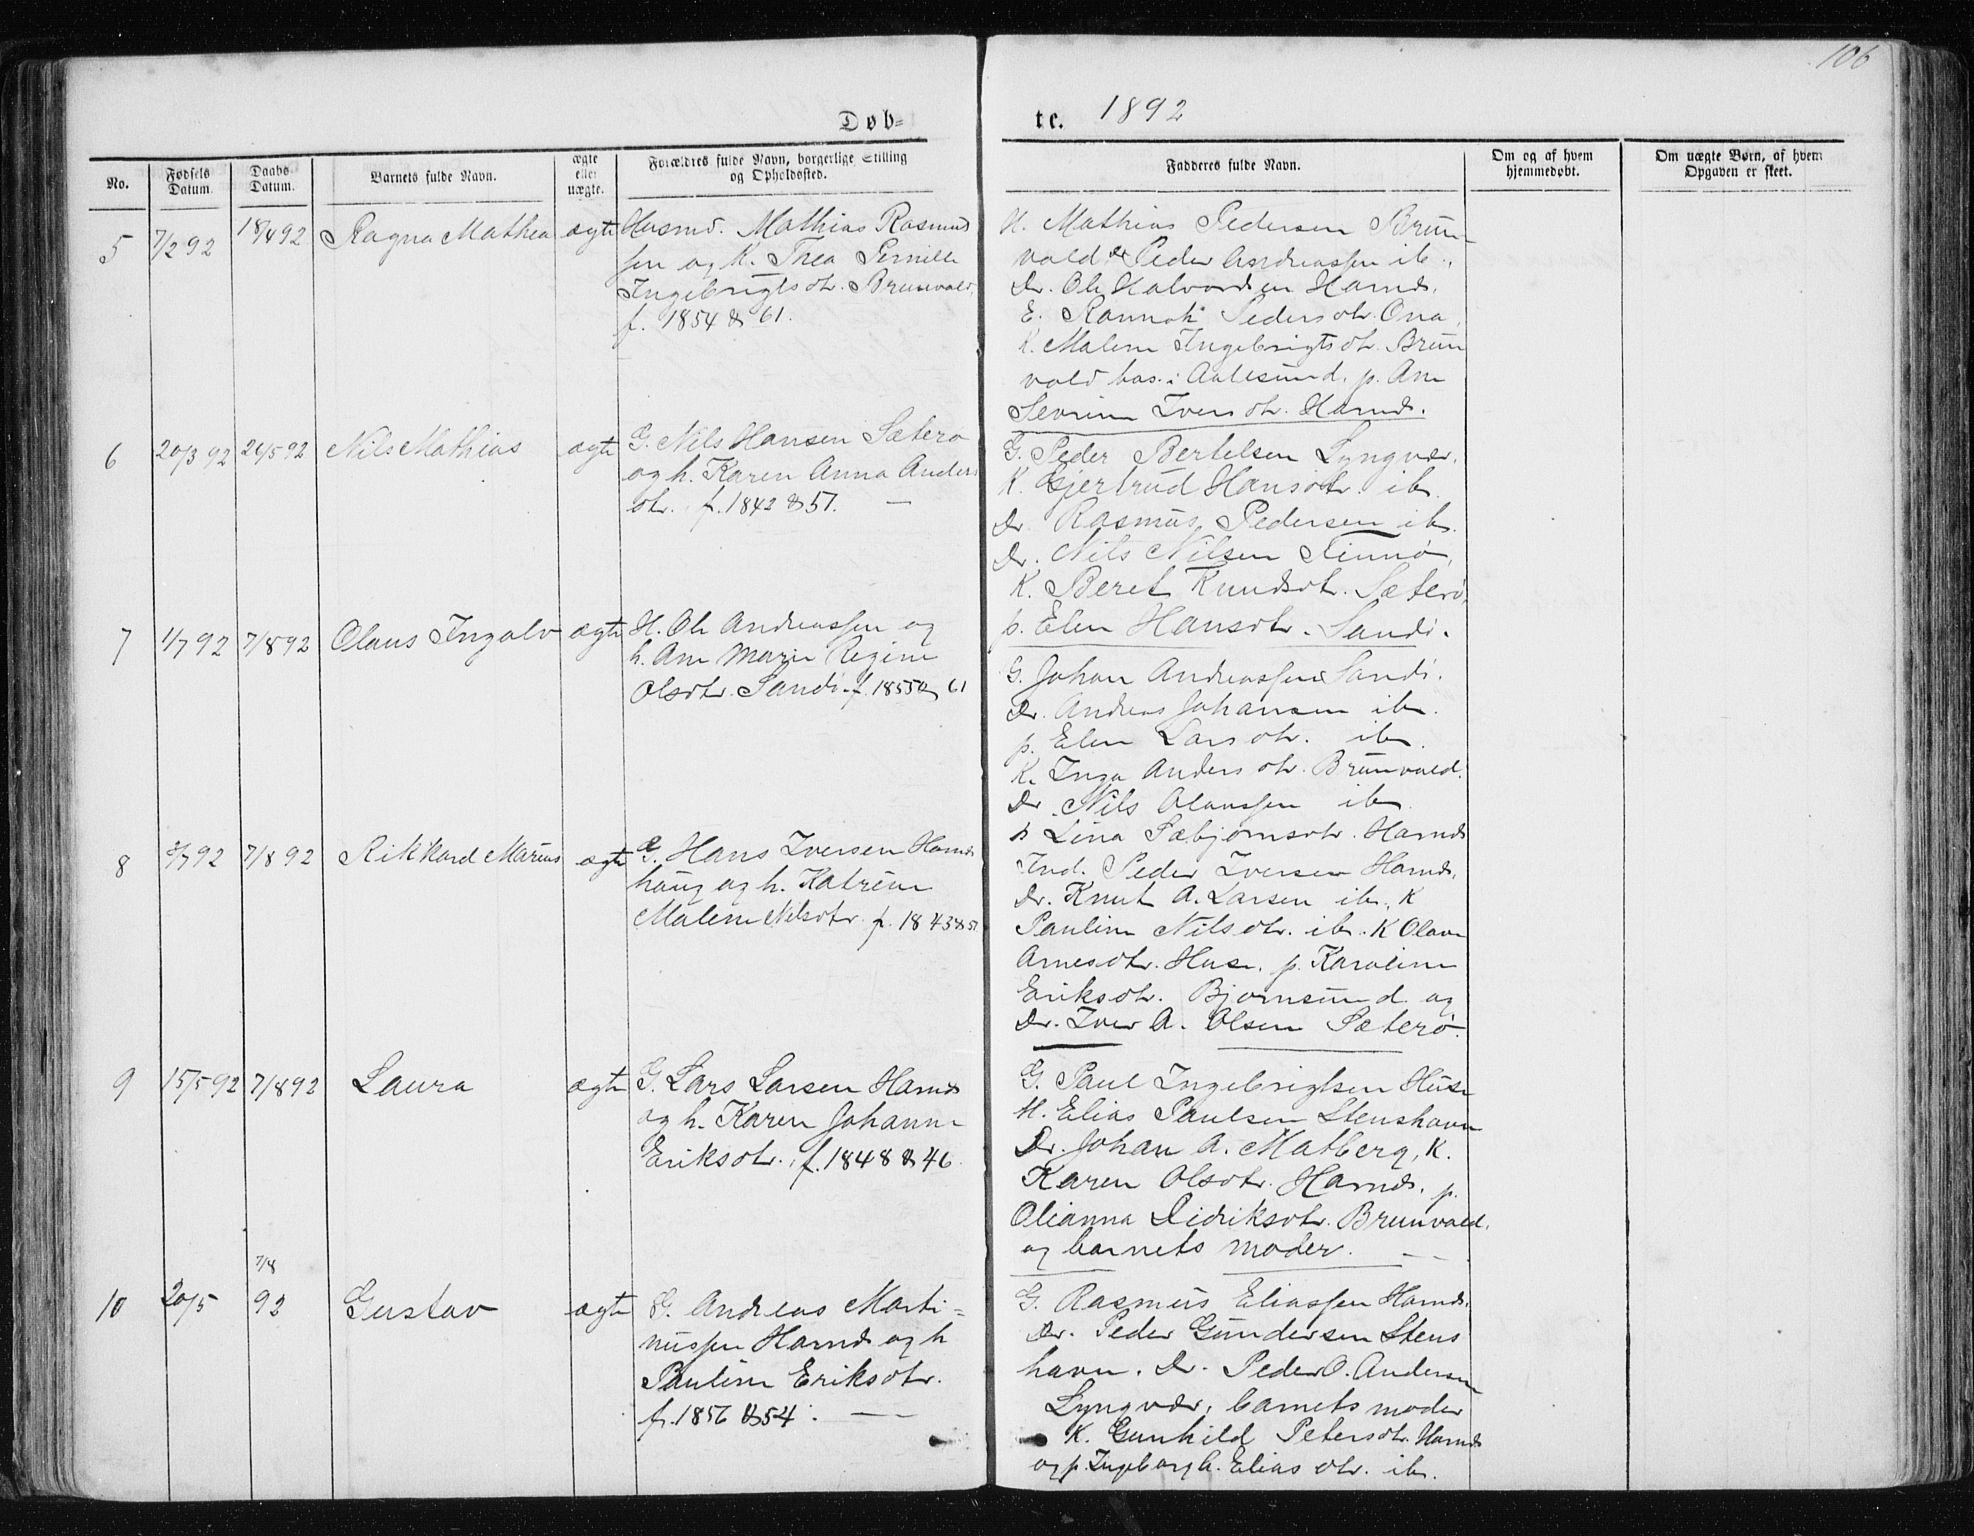 106
Døb-
te. 1892
No.
Fødsels Datum.
Daabs Datum.
Barnets fulde Navn.
ægte eller uægte.
Forældres fulde Navn, borgerlige Stilling
og Opholdssted.
Fadderes fulde Navn.
Om og af hvem
hjemmedøbt.
Om uægte Børn, af hvem
Opgaven er skeet.
5 7/2 92 18/4 92 Ragna Mathea ægte Husmd. Mathias Rasmus
sen og K. Thea Pernille
Ingebrigtsdtr. Brunvold,
f. 1854 & 61.
H. Mathias Pedersen Brun-
vold Dr Peder Andreassen ib.,
Dr. Ole Halvorsen Harnds.
E. Rannoh Pedersdtr. Ona,
K. Malene Ingebrigtsdtr. Brun
vold bos. i Aalesund, p. Ane
Sevrine Iversdtr. Harnds.
6 20/3 92 26/5 92 Nils Mathias ægte G. Nils Hansen Sæterø
og h. Karen Anna Anders
dtr. f. 1842 & 57. —
G. Peder Bertelsen Lyngvær.
K. Gjertrud Hansdtr. ib.
Dr. Rasmus Pedersen ib.
Dr. Nils Nilsen Finnø,
K. Beret Knudsdtr. Sæterø,
p. Elen Hansdtr. Sandø.
7 1/7 92 7/8 92 Olaus Ingolv ægte H. Ole Andreassen og
h. Ane Marie Regine
Olsdtr. Sandø. f. 1855 & 61
G. Johan Andreassen Sandø.
Dr. Andreas Johansen ib.
p. Elen Larsdtr. ib.
K. Inga Andersdtr. Brunvold.
Dr. Nils Olaussen ib.
p. Lina Sæbjørnsdtr. Harnds
8 2/7 92 7/8 92 Rikkard Marius ægte G. Hans Iversen Harnds
haug og h. Katrine
Malene Nilsdtr. f. 1843 & 51.
Ind. Peder Iversen Harnds.
Dr. Knut A. Larsen ib. K
Pauline Nilsdtr. ib. K Olave
Arnesdtr. Huse. p. Karoline
Eriksdtr. Bjørnsund og
Dr. Iver A. Olsen Sæterø.
9 15/5 92 7/8 92 Laura ægte G. Lars Larsen Harnds
og h. Karen Johanne
Eriksdtr. f. 1848 & 46.
G. Paul Ingebrigtsen Huse
H. Elias Paulsen Stenshavn
Dr. Johan A. Malberg, K.
Karen Olsdtr. Harnds. p.
Olianna Didriksdtr. Brunvold.
og barnets moder. —
10 20/5 7/8 92 Gustav ægte G. Andreas Marti-
nussen Harnds og h
Pauline Eriksdtr.
f. 1856 & 54. —
G. Rasmus Eliassen Harnds.
Dr. Peder Gundersen Stens
havn. Dr. Peder O. Andersen
Lyngvær, barnets moder
K. Gunhild Petersdtr. Harnds
og p. Ingeborg A. Eliasdtr. ib.